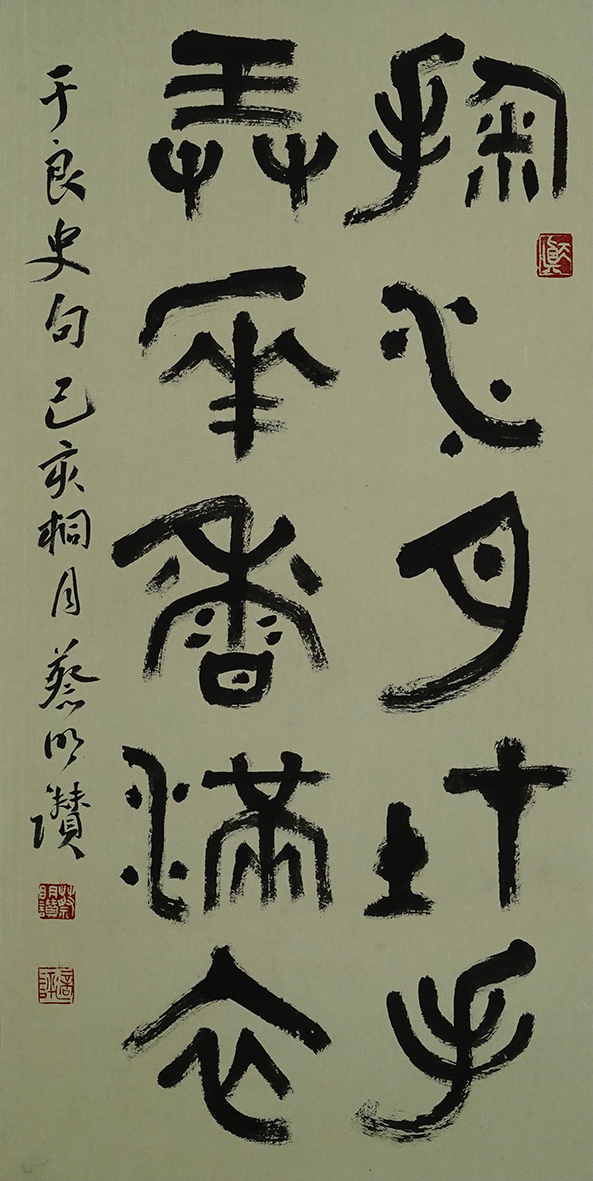 掬水月在手
弄花香滿衣
于良史句 己亥桐月 蔡明讚
蔡明讚